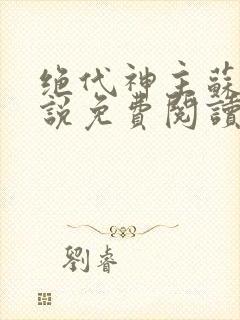 绝代神主蘇
說免費閱讀
劉睿